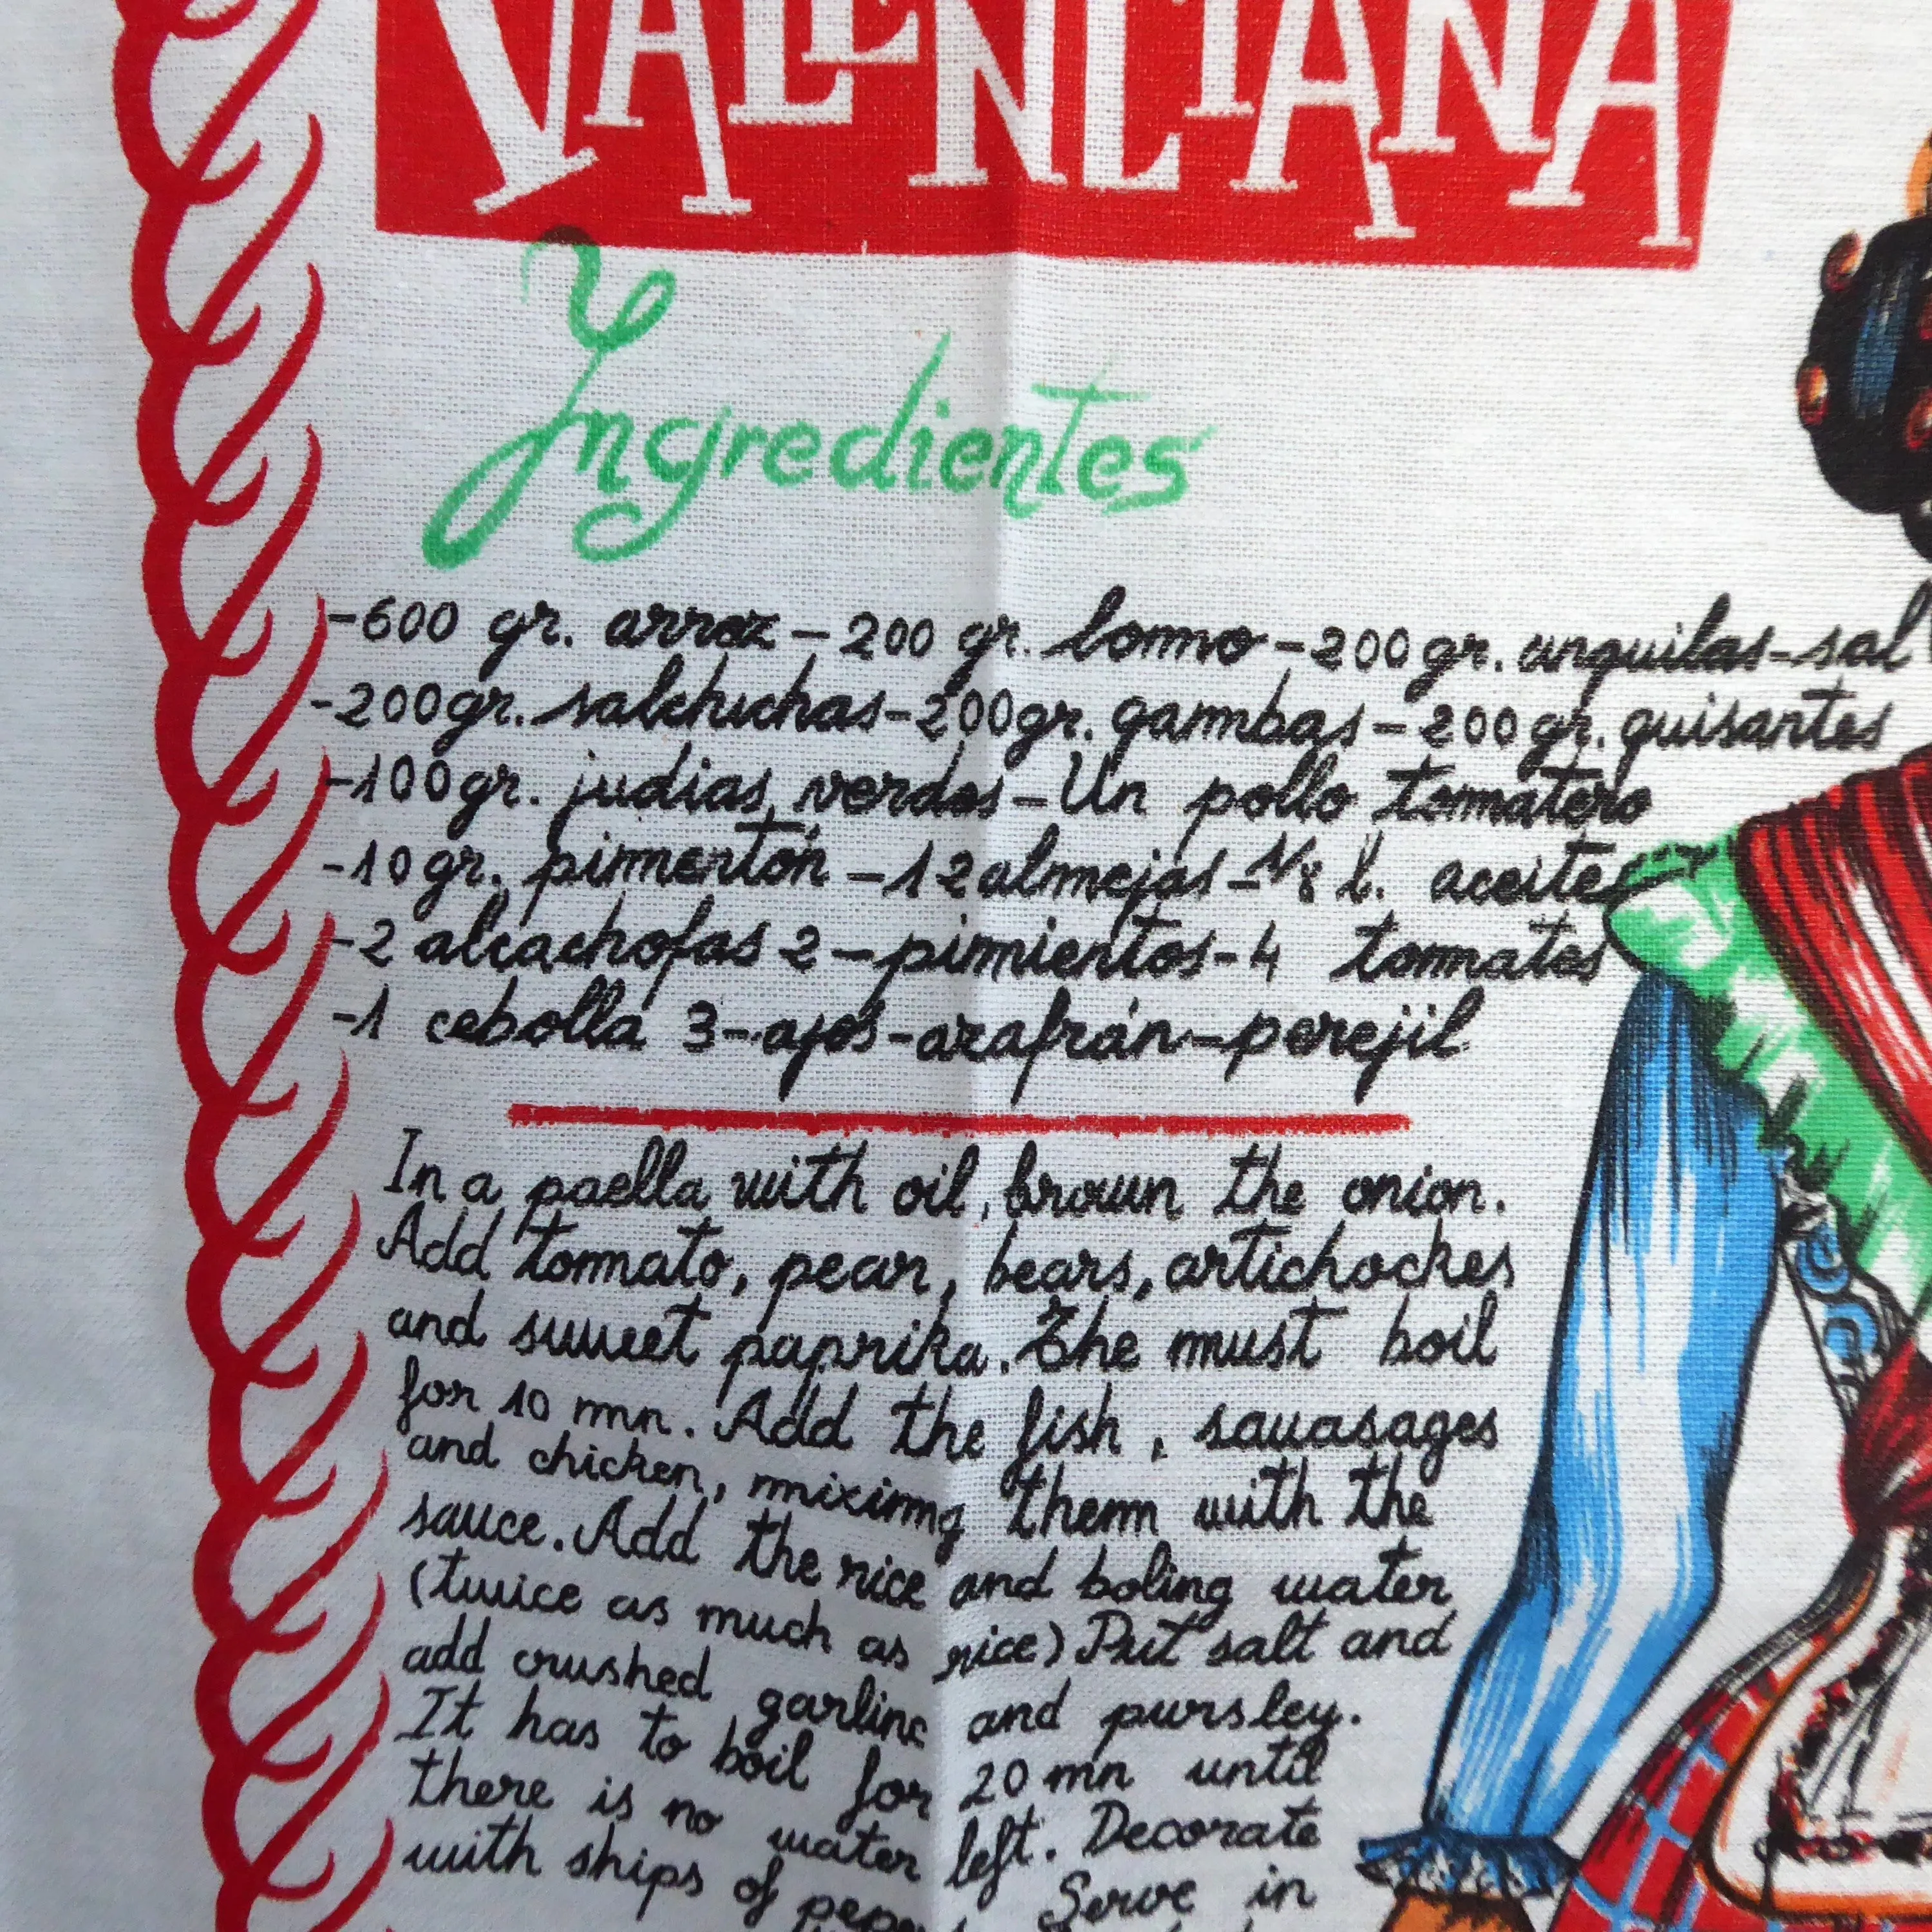 VALENCIANA
Yngredientes
-600 gr. arroz - 200 gr. lommo - 200 gr. anguilas - sal
-200 gr. salchichas - 200 gr. gambas - 200 gr. guisantes
-100 gr. judias verdes - Un pollo tomatero
-10 gr. pimentón - 12 almejas - 1/8 l. aceite
-2 alcachofas 2 - pimientos - 4 tomates
-1 cebolla 3 - ajos - azafrán - perejil
In a paella with oil, brown the onion.
Add tomato, pear, bears, artichockes
and sweet paprika. The must boil
for 10 mn. Add the fish, sauasages
and chicken, miximg them with the
sauce. Add the rice and boling water
(twice as much as rice) Put salt and
add crushed garlinc and pursley.
It has to boil for 20 mn until
there is no water left. Decorate
with ships of Serve in